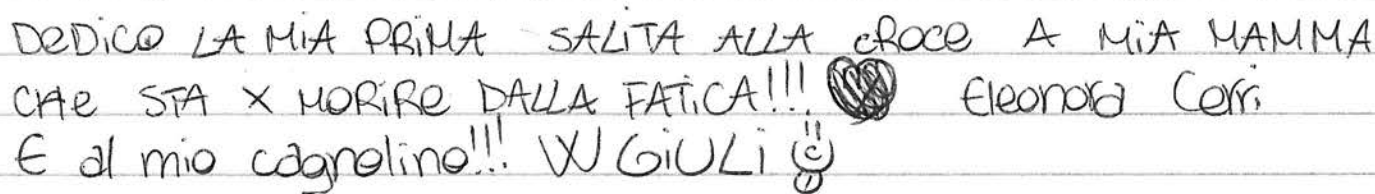 DEDICO LA MIA PRIMA SALITA ALLA CROCE A MIA MAMMA
CHE STA X MORIRE DALLA FATICA!!! Eleonora Cerri
E al mio cagnolino!!! W GIULI